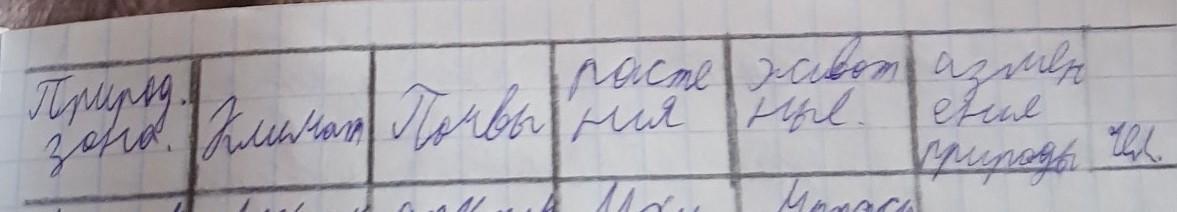 Природ.
зона.
Климат
Почвы
расте
ния
живот
ные.
измен
ения
природы чел.
Мхи